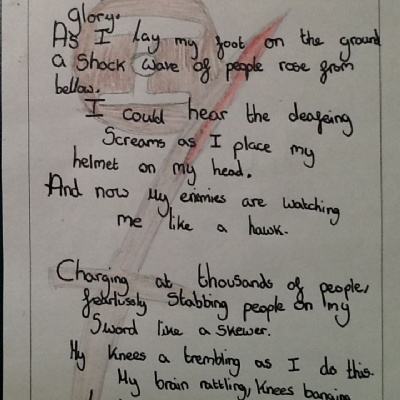 glory.
As I lay my foot on the ground
a shock wave of people rose from
bellow.
I could hear the deafeing
Screams as I place my
helmet on my head.
And now My enemies are watching
me like a hawk.
Charging at thousands of people,
fearlussly stabbing people on my
Sword like a skewer.
My knees a trembling as I do this.
My brain rattling, knees banging